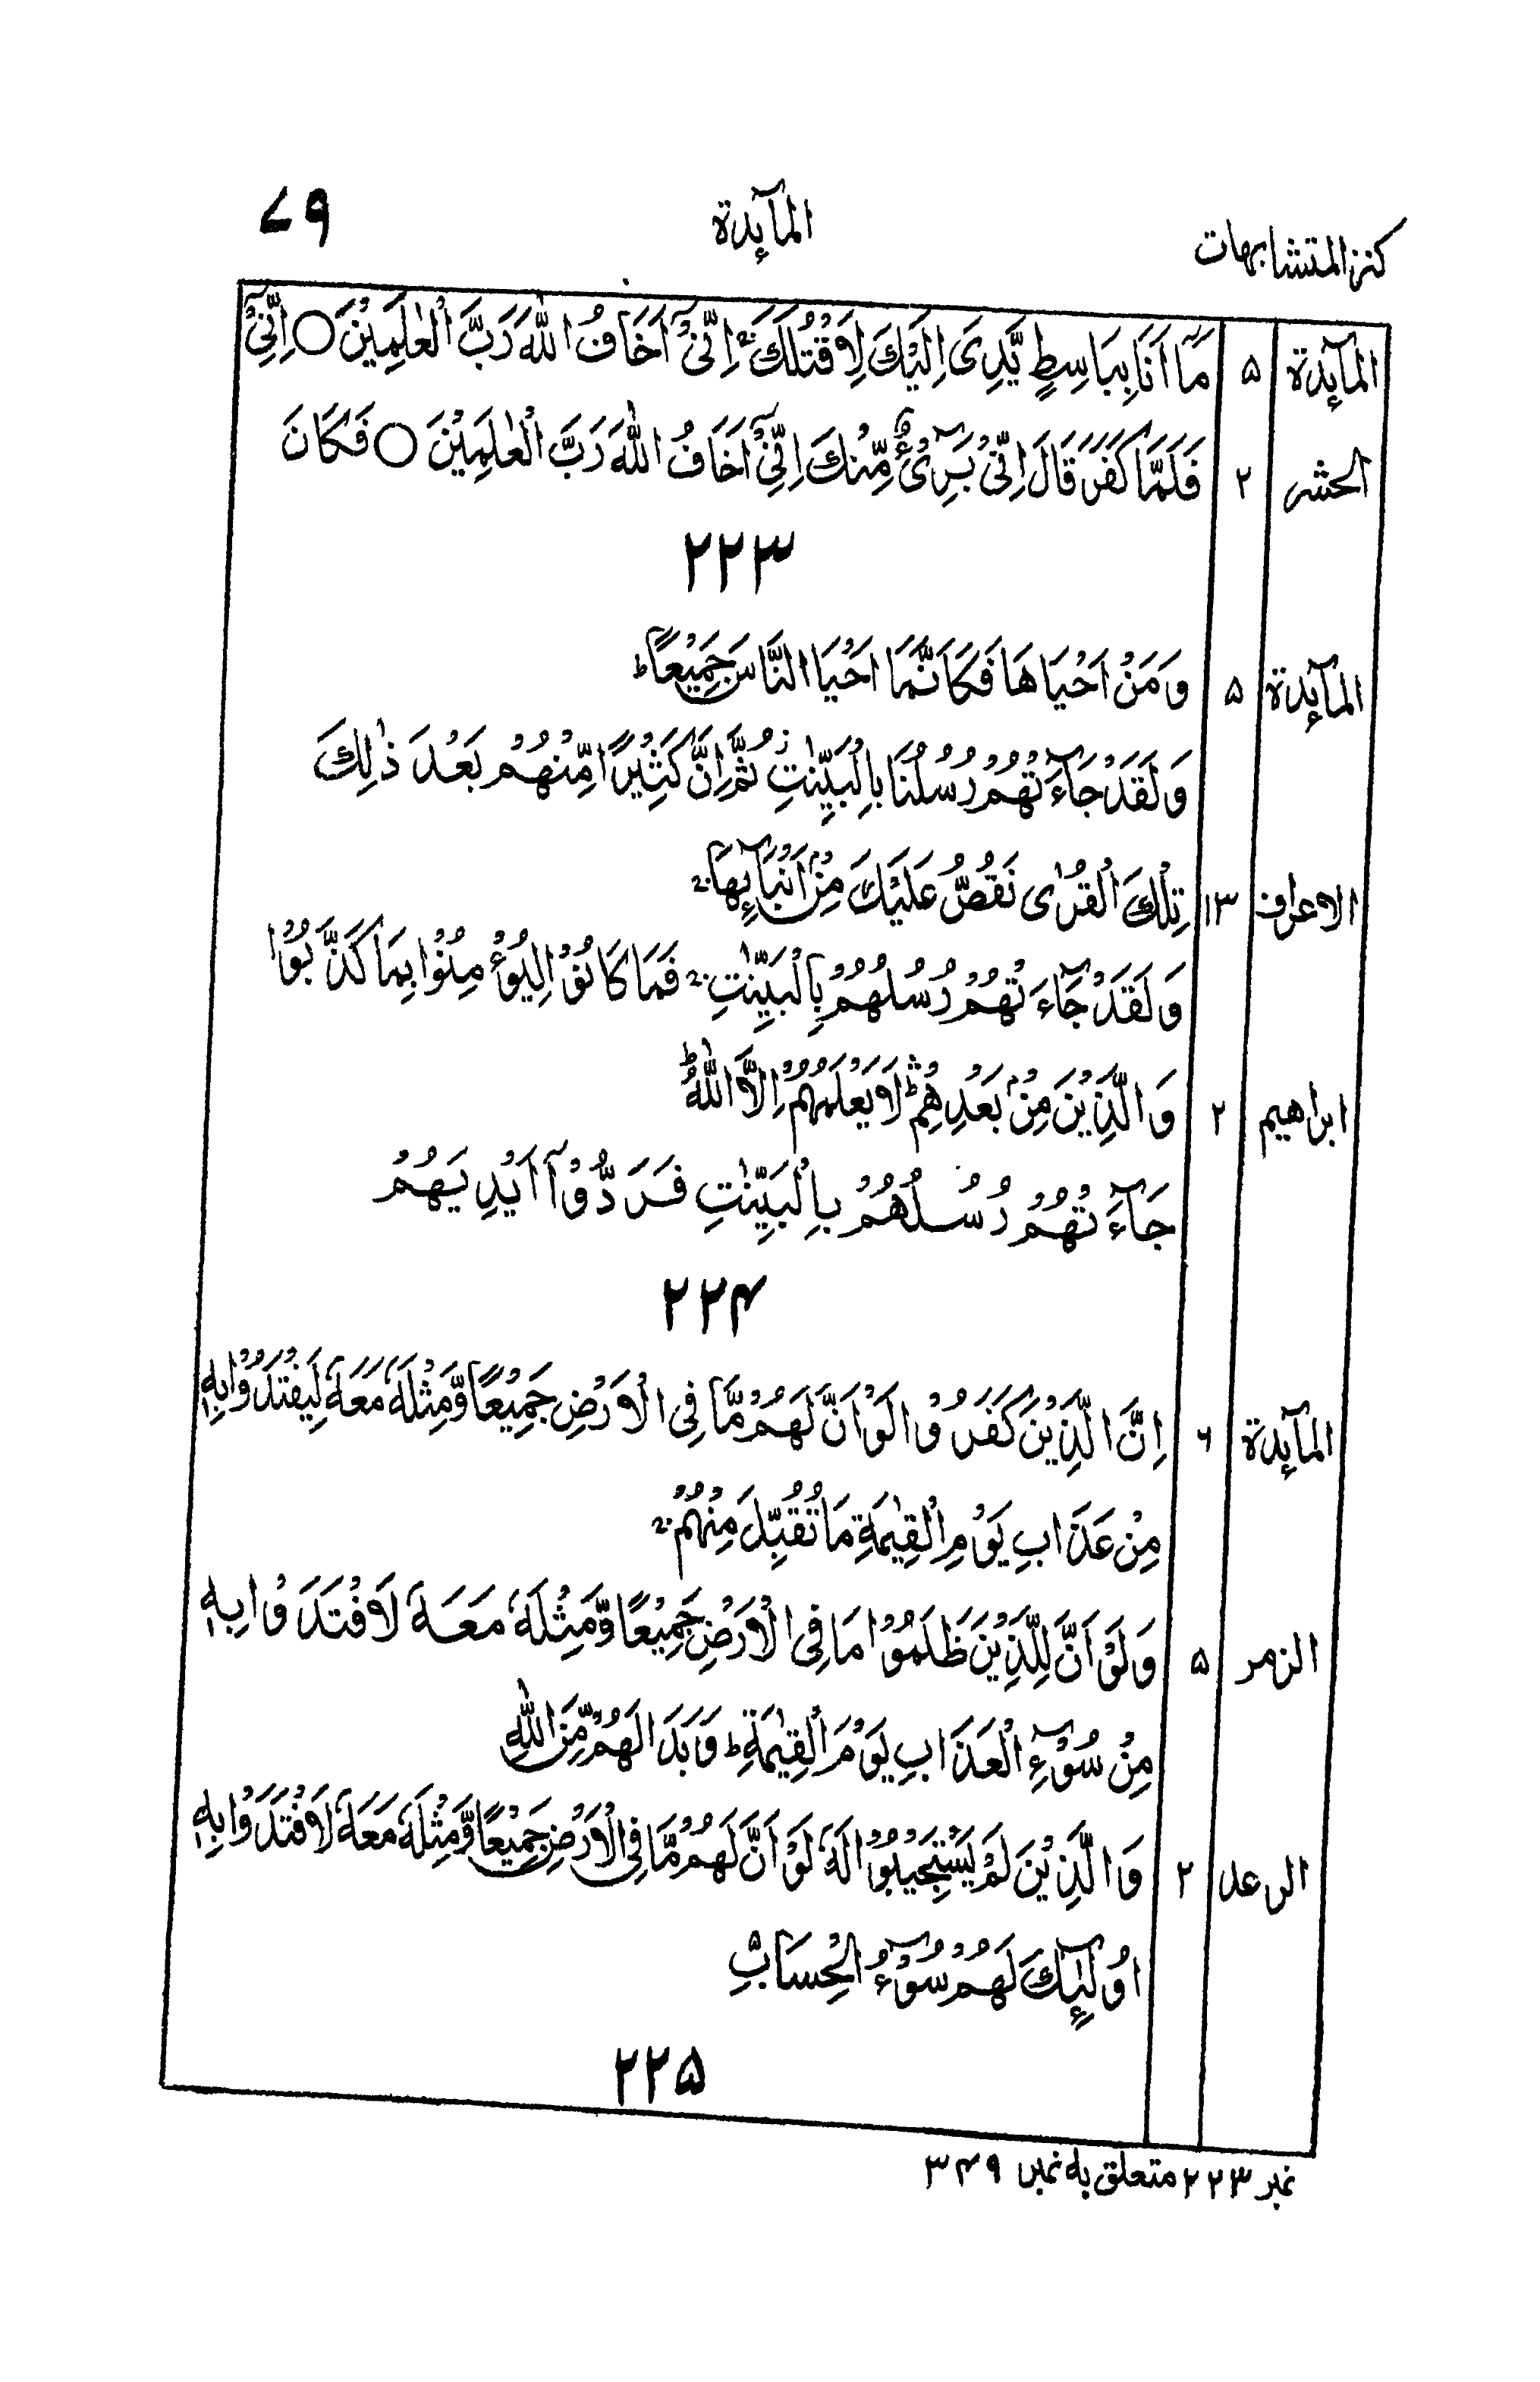 كنز المتشابهات المآئدة ٧٩
المآئدة ۵ مَآ اَنَا بِبَاسِطٍ يَّدِىَ اِلَيْكَ لِاَقْتُلَكَ ۚ اِنِّىْٓ اَخَافُ اللّٰهَ رَبَّ الْعٰلَمِيْنَ ○ اِنِّىْٓ
الحشر ٢ فَلَمَّا كَفَرَ قَالَ اِنِّىْ بَرِىْٓءٌ مِّنْكَ اِنِّىْٓ اَخَافُ اللّٰهَ رَبَّ الْعٰلَمِيْنَ ○ فَكَانَ
٢٢٣
المآئدة ۵ وَمَنْ اَحْيَاهَا فَكَاَنَّمَآ اَحْيَا النَّاسَ جَمِيْعًا ؕ
وَلَقَدْ جَآءَتْهُمْ رُسُلُنَا بِالْبَيِّنٰتِ ز ثُمَّ اِنَّ كَثِيْرًا مِّنْهُمْ بَعْدَ ذٰلِكَ
الاعراف ١٣ تِلْكَ الْقُرٰى نَقُصُّ عَلَيْكَ مِنْ اَنْۢبَآئِهَا ۚ
وَلَقَدْ جَآءَتْهُمْ رُسُلُهُمْ بِالْبَيِّنٰتِ ۚ فَمَا كَانُوْا لِيُؤْمِنُوْا بِمَا كَذَّبُوْا
ابراهيم ٢ وَالَّذِيْنَ مِنْۢ بَعْدِهِمْ ؕ لَا يَعْلَمُهُمْ اِلَّا اللّٰهُ ؕ
جَآءَتْهُمْ رُسُلُهُمْ بِالْبَيِّنٰتِ فَرَدُّوْٓا اَيْدِيَهُمْ
٢٢۴
المآئدة ۶ اِنَّ الَّذِيْنَ كَفَرُوْا لَوْ اَنَّ لَهُمْ مَّا فِى الْاَرْضِ جَمِيْعًا وَّمِثْلَهٗ مَعَهٗ لِيَفْتَدُوْا بِهٖ
مِنْ عَذَابِ يَوْمِ الْقِيٰمَةِ مَا تُقُبِّلَ مِنْهُمْ ۚ
الزمر ۵ وَلَوْ اَنَّ لِلَّذِيْنَ ظَلَمُوْا مَا فِى الْاَرْضِ جَمِيْعًا وَّمِثْلَهٗ مَعَهٗ لَافْتَدَوْا بِهٖ
مِنْ سُوْٓءِ الْعَذَابِ يَوْمَ الْقِيٰمَةِ ؕ وَبَدَا لَهُمْ مِّنَ اللّٰهِ
الرعد ٢ وَالَّذِيْنَ لَمْ يَسْتَجِيْبُوْا لَهٗ لَوْ اَنَّ لَهُمْ مَّا فِى الْاَرْضِ جَمِيْعًا وَّمِثْلَهٗ مَعَهٗ لَافْتَدَوْا بِهٖ
اُولٰٓئِكَ لَهُمْ سُوْٓءُ الْحِسَابِ ۵
٢٢۵
نمبر ٢٢٣ متعلق به نمبر ٣۴٩